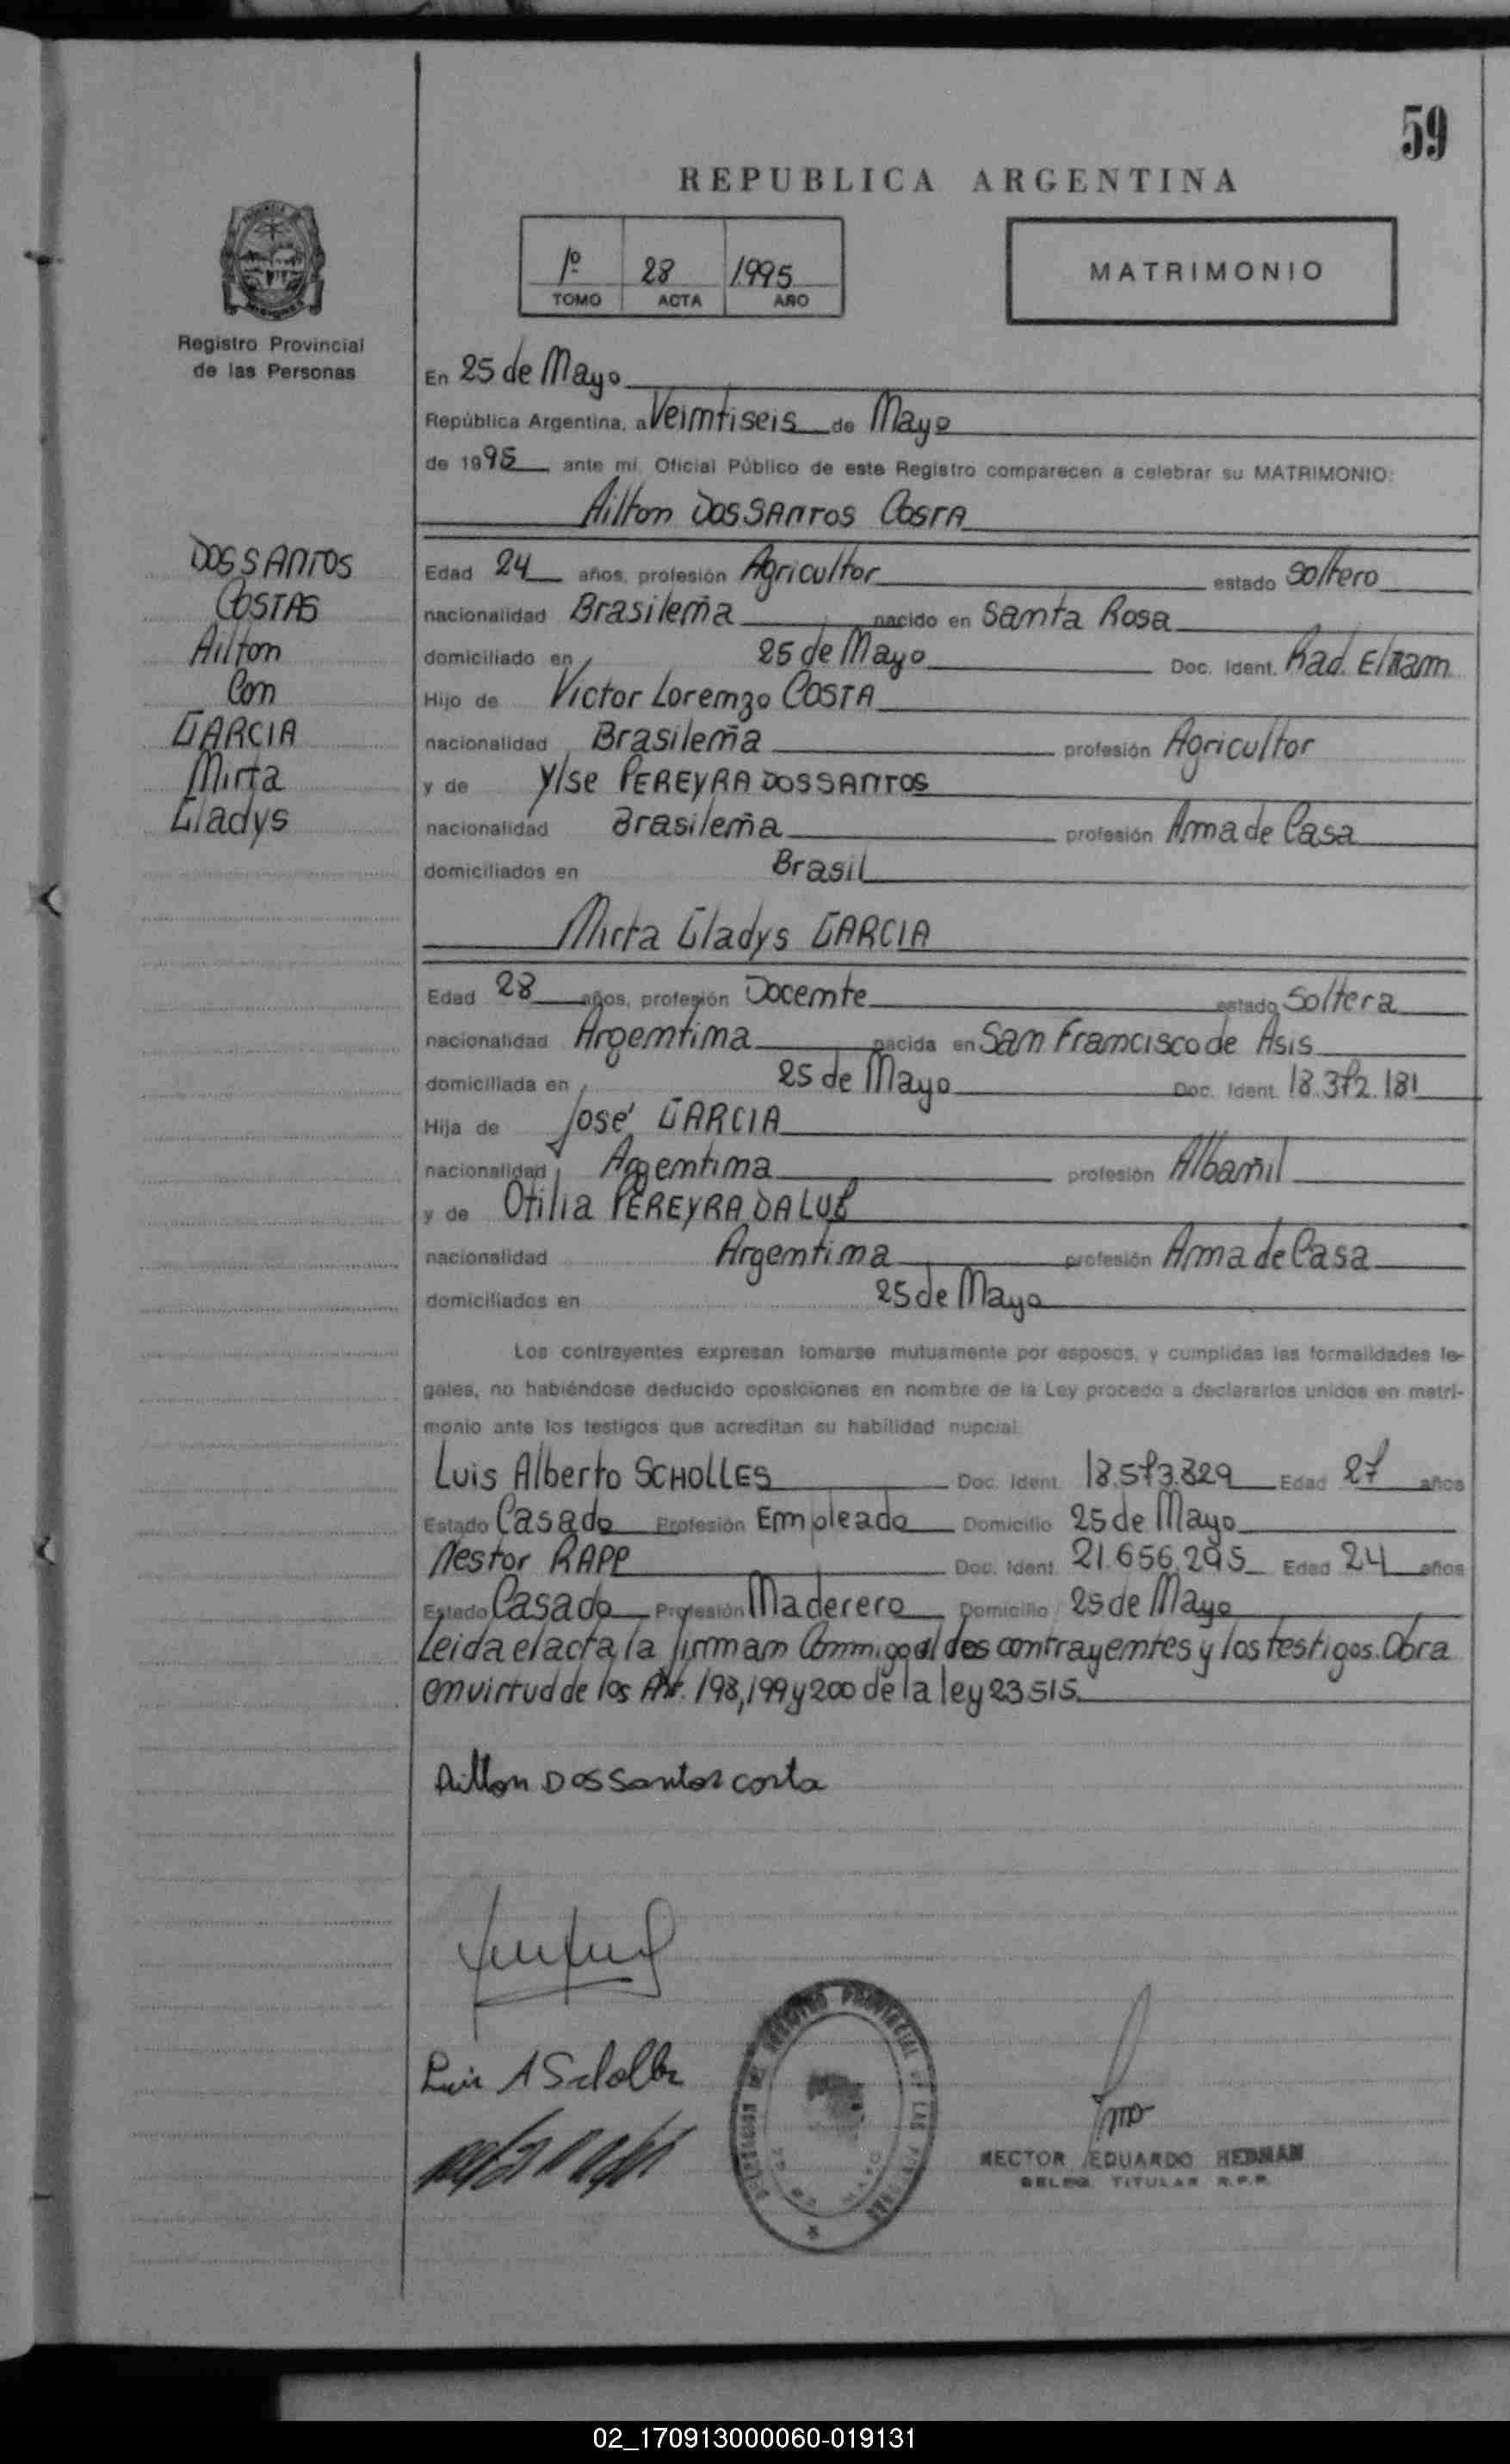 59
REPUBLICA ARGENTINA
1º 28 1995
TOMO ACTA AÑO
MATRIMONIO
Registro Provincial
de las Personas
En 25 de Mayo
República Argentina, a Veintiseis de Mayo
de 1995 ante mí, Oficial Público de este Registro comparecen a celebrar su MATRIMONIO:
Ailton DOS SANTOS COSTA
DOS SANTOS
COSTAS
Ailton
Con
GARCIA
Mirta
Gladys
Edad 24 años, profesión Agricultor estado Soltero
nacionalidad Brasileña nacido en Santa Rosa
domiciliado en 25 de Mayo Doc. Ident. Rad. El tram
Hijo de Victor Lorenzo COSTA
nacionalidad Brasileña profesión Agricultor
y de Ylse PEREYRA DOS SANTOS
nacionalidad Brasileña profesión Ama de Casa
domiciliados en Brasil
Mirta Gladys GARCIA
Edad 28 años, profesión Docente estado Soltera
nacionalidad Argentina nacida en San Francisco de Asis
domiciliada en 25 de Mayo Doc. Ident. 18.372.181
Hija de José GARCIA
nacionalidad Argentina profesión Albañil
y de Otilia PEREYRA DA LUZ
nacionalidad Argentina profesión Ama de Casa
domiciliados en 25 de Mayo
Los contrayentes expresan tomarse mutuamente por esposos, y cumplidas las formalidades le-
gales, no habiéndose deducido oposiciones en nombre de la Ley procedo a declararlos unidos en matri-
monio ante los testigos que acreditan su habilidad nupcial
Luis Alberto SCHOLLES Doc. Ident. 18.573.829 Edad 27 años
Estado Casado Profesión Empleado Domicilio 25 de Mayo
Nestor RAPP Doc. Ident. 21.656.295 Edad 24 años
Estado Casado Profesión Maderero Domicilio 25 de Mayo
Leida el acta la firman Conmigo el des contrayentes y los testigos. Obra
en virtud de los Art. 198, 199 y 200 de la ley 23515.
Ailton Dos Santos costa
Luis A Scholles
REGISTRO PROVINCIAL DE LAS PERSONAS
HECTOR EDUARDO HEDMAN
DELEG. TITULAR R.P.P.
02_170913000060-019131